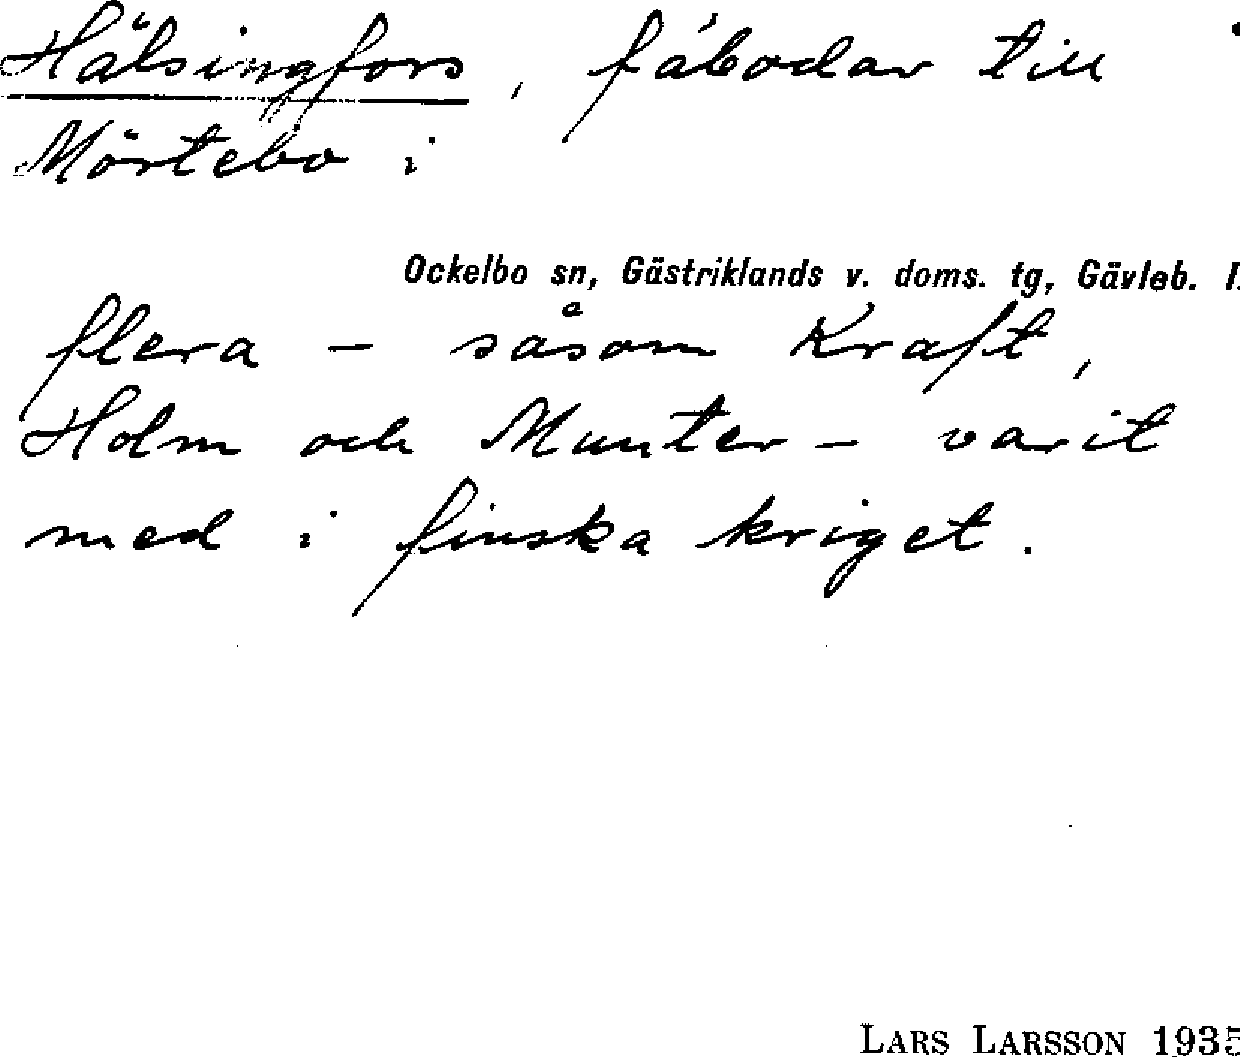 Hälsingfors, fäbodar till
Mörtebo i
Ockelbo sn, Gästriklands v. doms. tg, Gävleb. l.
flera – såsom Kraft,
Holm och Munter – varit
med i finska kriget.
LARS LARSSON 1935